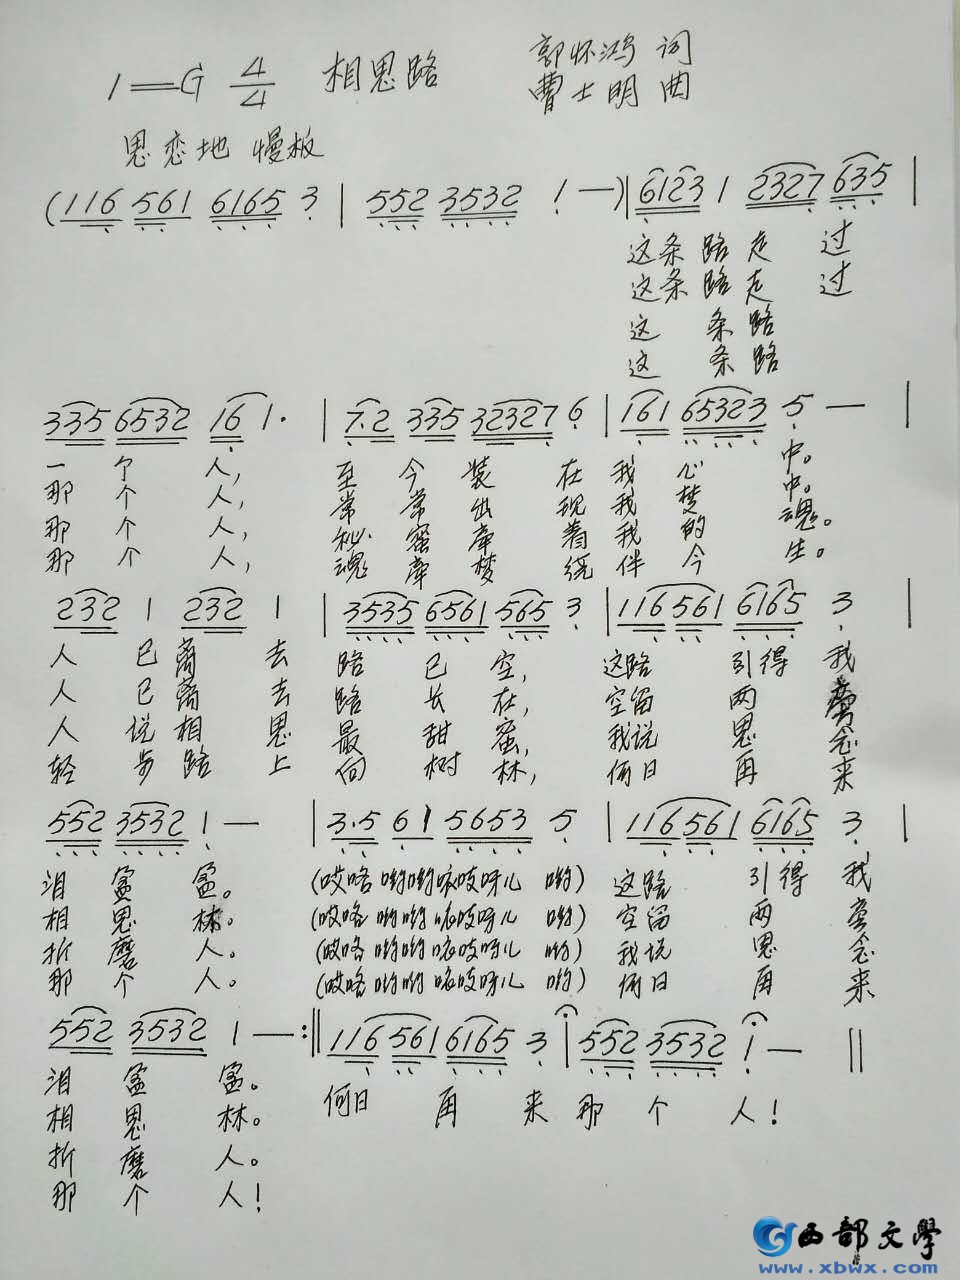 1=G 4/4 相思路 郭怀鸿 词
曹士明 曲
思恋地 慢板
(116 561 6165 3 | 552 3532 1 —)| 6123 1 2327 635 |
这条路走过
这条路走过
这条路
这条路
335 6532 16 1· | 7·2 335 32327 6 | 161 65323 5 — |
一个人, 至今装在我心中。
那个人, 常常出现我梦中。
那个人, 秘蜜牵着我的魂。
那个人, 魂牵梦绕伴今生。
232 1 232 1 | 3535 6561 565 3 | 116 561 6165 3 |
人已离去 路已空, 这路引得我
人已离去 路长在, 空留两旁
人说相思 最甜蜜, 我说思念
轻步路上 向树林, 何日再来
552 3532 1 — | 3·5 61 5653 5 | 116 561 6165 3 |
泪盈盈。 (哎咯哟哟咴吱呀儿哟) 这路引得我
相思林。 (哎咯哟哟咴吱呀儿哟) 空留两旁
折磨人。 (哎咯哟哟咴吱呀儿哟) 我说思念
那个人。 (哎咯哟哟咴吱呀儿哟) 何日再来
552 3532 1 — :‖ 116 561 6165 3 | 552 3532 1 — ‖
泪盈盈。 何日再来那个人!
相思林。
折磨人。
那个人!
西部文學
www.xbwx.com